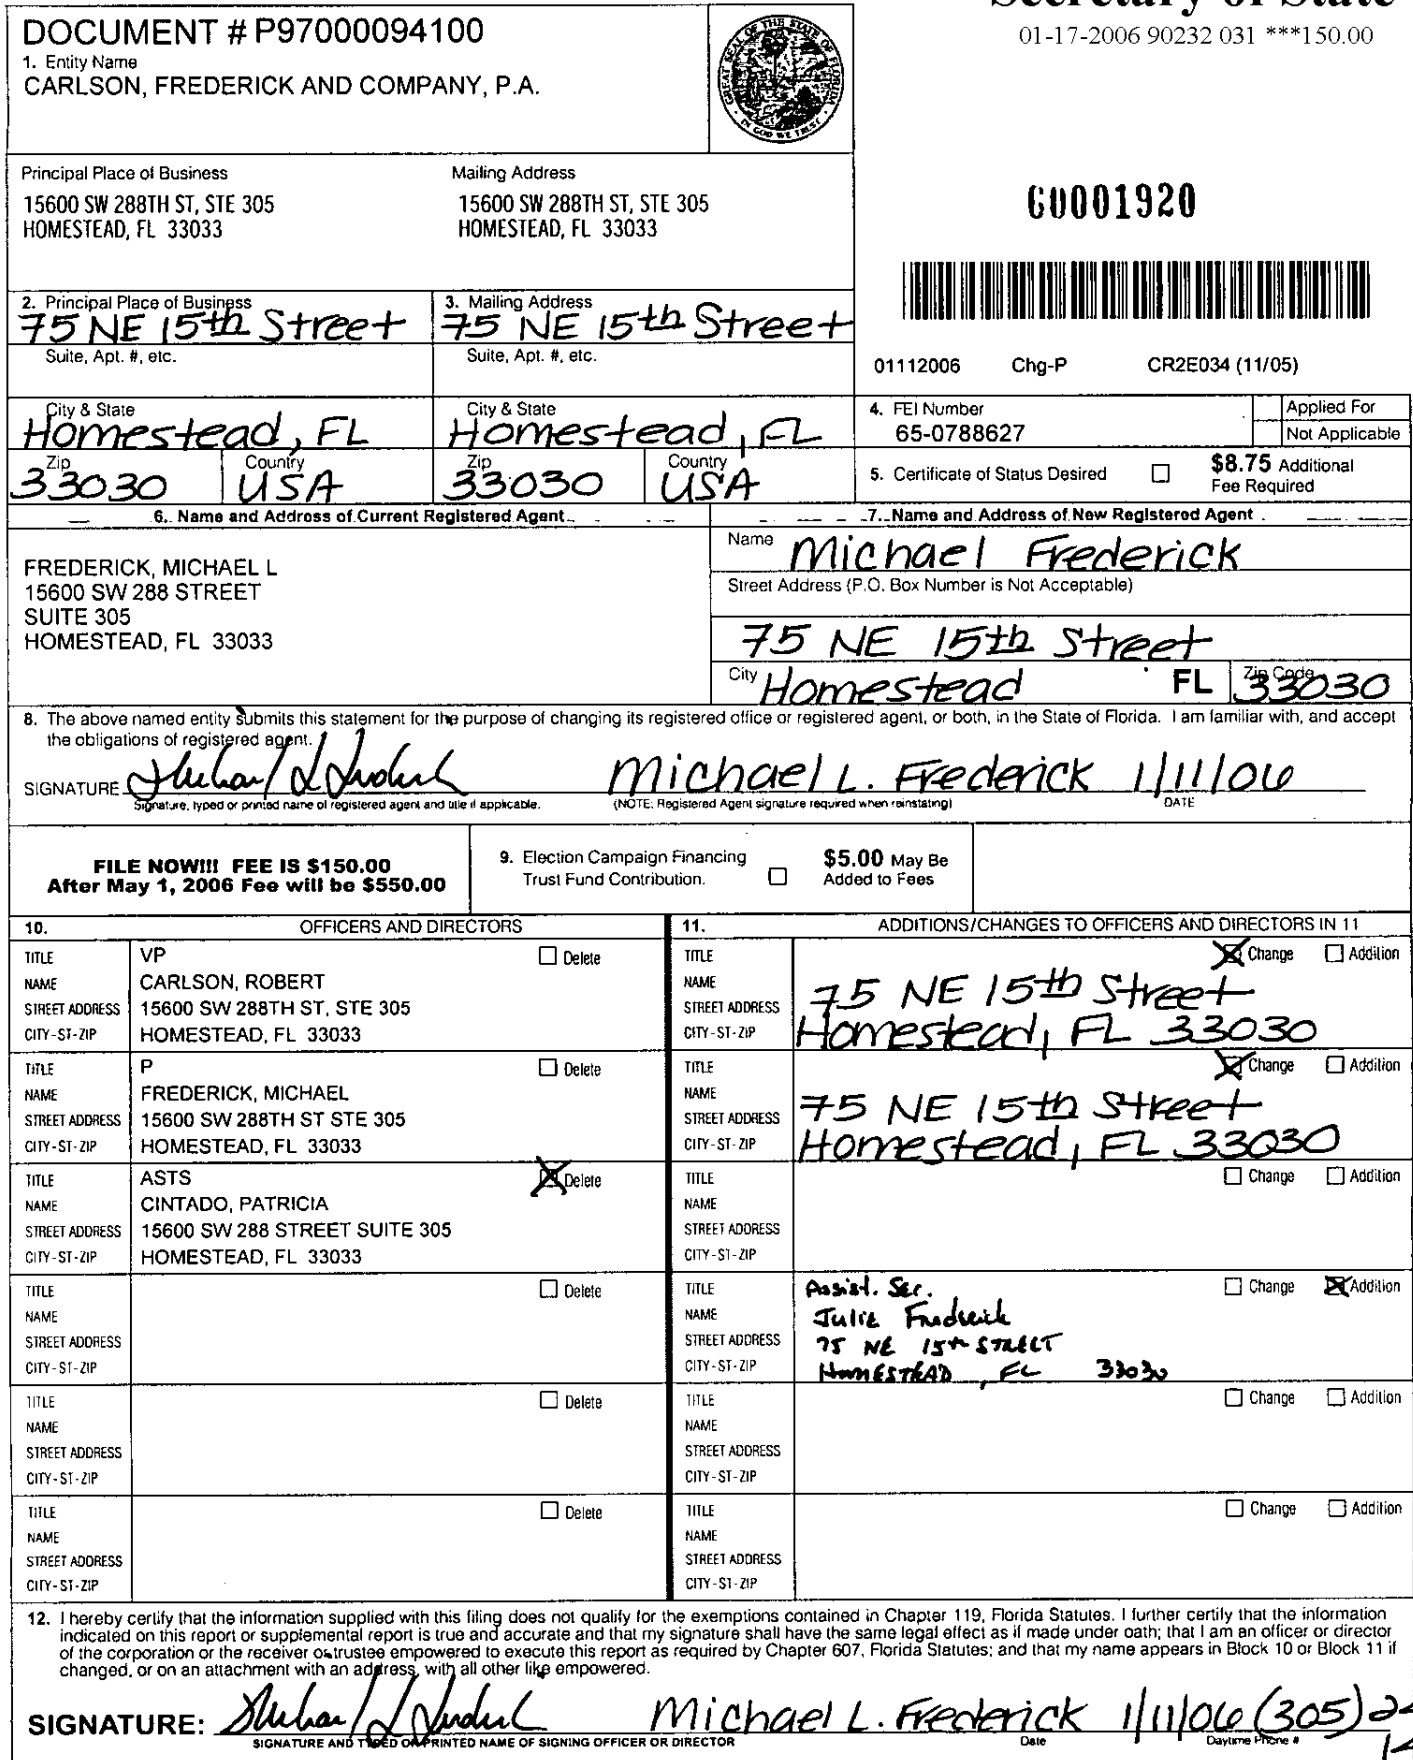 Secretary of State
01-17-2006 90232 031 ***150.00
DOCUMENT # P97000094100
1. Entity Name
CARLSON, FREDERICK AND COMPANY, P.A.
GREAT SEAL OF THE STATE OF FLORIDA
IN GOD WE TRUST
Principal Place of Business
15600 SW 288TH ST, STE 305
HOMESTEAD, FL 33033
Mailing Address
15600 SW 288TH ST, STE 305
HOMESTEAD, FL 33033
60001920
2. Principal Place of Business
75 NE 15th Street
Suite, Apt. #, etc.
3. Mailing Address
75 NE 15th Street
Suite, Apt. #, etc.
01112006 Chg-P CR2E034 (11/05)
City & State
Homestead, FL
City & State
Homestead, FL
Zip
33030
Country
USA
Zip
33030
Country
USA
4. FEI Number
65-0788627
Applied For
Not Applicable
5. Certificate of Status Desired
$8.75 Additional
Fee Required
6. Name and Address of Current Registered Agent
FREDERICK, MICHAEL L
15600 SW 288 STREET
SUITE 305
HOMESTEAD, FL 33033
7. Name and Address of New Registered Agent
Name Michael Frederick
Street Address (P.O. Box Number is Not Acceptable)
75 NE 15th Street
City Homestead FL Zip Code 33030
8. The above named entity submits this statement for the purpose of changing its registered office or registered agent, or both, in the State of Florida. I am familiar with, and accept
the obligations of registered agent.
SIGNATURE Michael L Frederick Michael L. Frederick 1/11/06
Signature, typed or printed name of registered agent and title if applicable. (NOTE: Registered Agent signature required when reinstating) DATE
FILE NOW!!! FEE IS $150.00
After May 1, 2006 Fee will be $550.00
9. Election Campaign Financing
Trust Fund Contribution.
$5.00 May Be
Added to Fees
10. OFFICERS AND DIRECTORS
TITLE VP Delete
NAME CARLSON, ROBERT
STREET ADDRESS 15600 SW 288TH ST, STE 305
CITY-ST-ZIP HOMESTEAD, FL 33033
TITLE P Delete
NAME FREDERICK, MICHAEL
STREET ADDRESS 15600 SW 288TH ST STE 305
CITY-ST-ZIP HOMESTEAD, FL 33033
TITLE ASTS Delete
NAME CINTADO, PATRICIA
STREET ADDRESS 15600 SW 288 STREET SUITE 305
CITY-ST-ZIP HOMESTEAD, FL 33033
TITLE Delete
NAME
STREET ADDRESS
CITY-ST-ZIP
TITLE Delete
NAME
STREET ADDRESS
CITY-ST-ZIP
TITLE Delete
NAME
STREET ADDRESS
CITY-ST-ZIP
11. ADDITIONS/CHANGES TO OFFICERS AND DIRECTORS IN 11
TITLE Change Addition
NAME
STREET ADDRESS 75 NE 15th Street
CITY-ST-ZIP Homestead, FL 33030
TITLE Change Addition
NAME
STREET ADDRESS 75 NE 15th Street
CITY-ST-ZIP Homestead, FL 33030
TITLE Change Addition
NAME
STREET ADDRESS
CITY-ST-ZIP
TITLE Assist. Sec. Change Addition
NAME Julie Frederick
STREET ADDRESS 75 NE 15th STREET
CITY-ST-ZIP HOMESTEAD, FL 33030
TITLE Change Addition
NAME
STREET ADDRESS
CITY-ST-ZIP
TITLE Change Addition
NAME
STREET ADDRESS
CITY-ST-ZIP
12. I hereby certify that the information supplied with this filing does not qualify for the exemptions contained in Chapter 119, Florida Statutes. I further certify that the information
indicated on this report or supplemental report is true and accurate and that my signature shall have the same legal effect as if made under oath; that I am an officer or director
of the corporation or the receiver or trustee empowered to execute this report as required by Chapter 607, Florida Statutes; and that my name appears in Block 10 or Block 11 if
changed, or on an attachment with an address, with all other like empowered.
SIGNATURE: Michael L Frederick Michael L. Frederick 1/11/06 (305) 24
SIGNATURE AND TYPED OR PRINTED NAME OF SIGNING OFFICER OR DIRECTOR Date Daytime Phone #